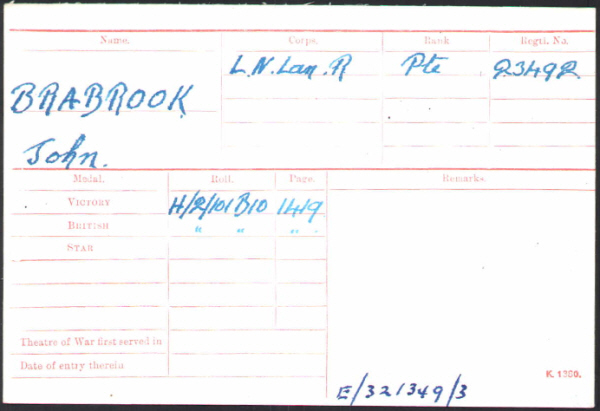 Name. Corps. Rank Regtl. No.
BRABROOK L.N.Lan.R Pte 23492
John.
Medal. Roll. Page. Remarks.
VICTORY H/2/101 B10 1419
BRITISH " " " "
STAR
Theatre of War first served in
Date of entry therein
K. 1380.
E/321349/3